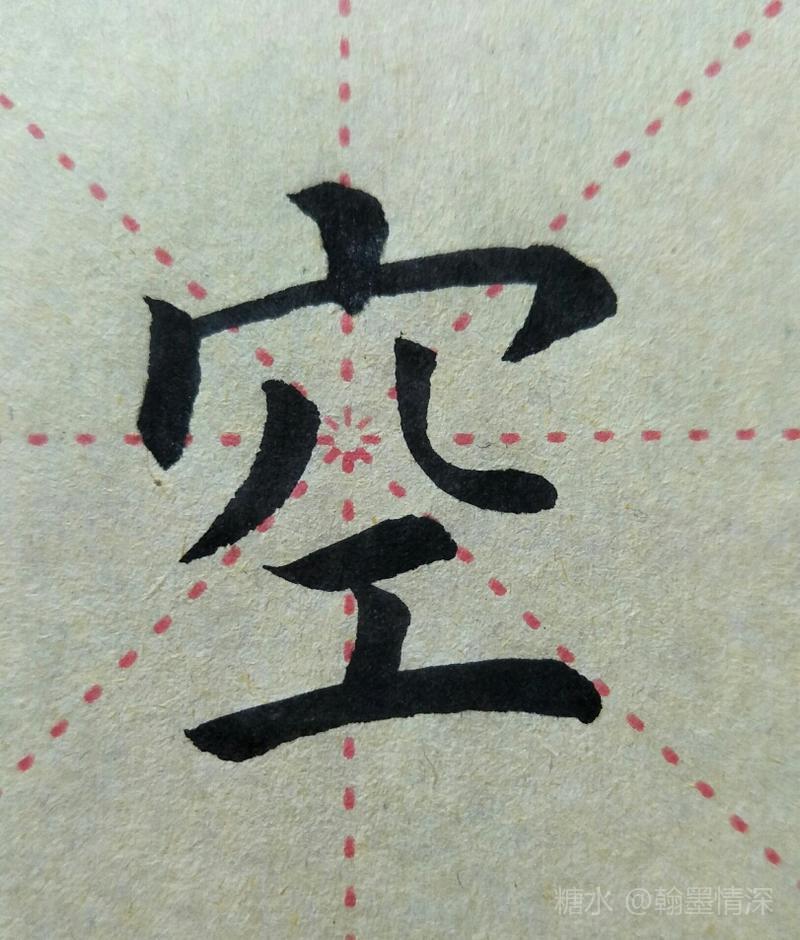 空
糖水 @翰墨情深